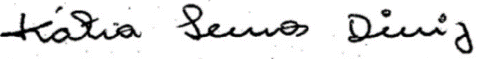 Kátia Lemos Diniz